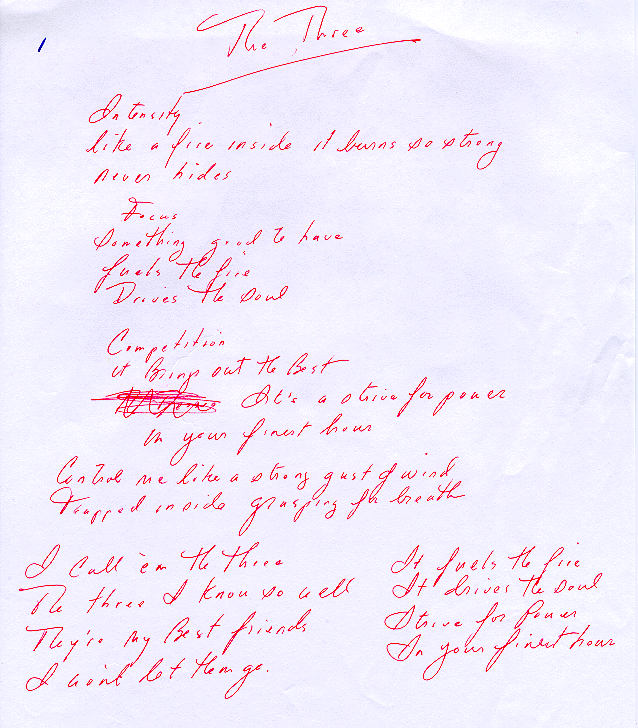 1
The Three
Intensity
like a fire inside it burns so strong
never hides
Focus
something good to have
fuels the fire
Drives the soul
Competition
it Brings out the Best
It's a strive for power
in your finest hour
Control me like a strong gust of wind
Trapped inside grasping for breath
I call 'em the three
The three I know so well
They're my Best friends
I won't let them go.
It fuels the fire
It drives the soul
Strive for Power
In your finest hour